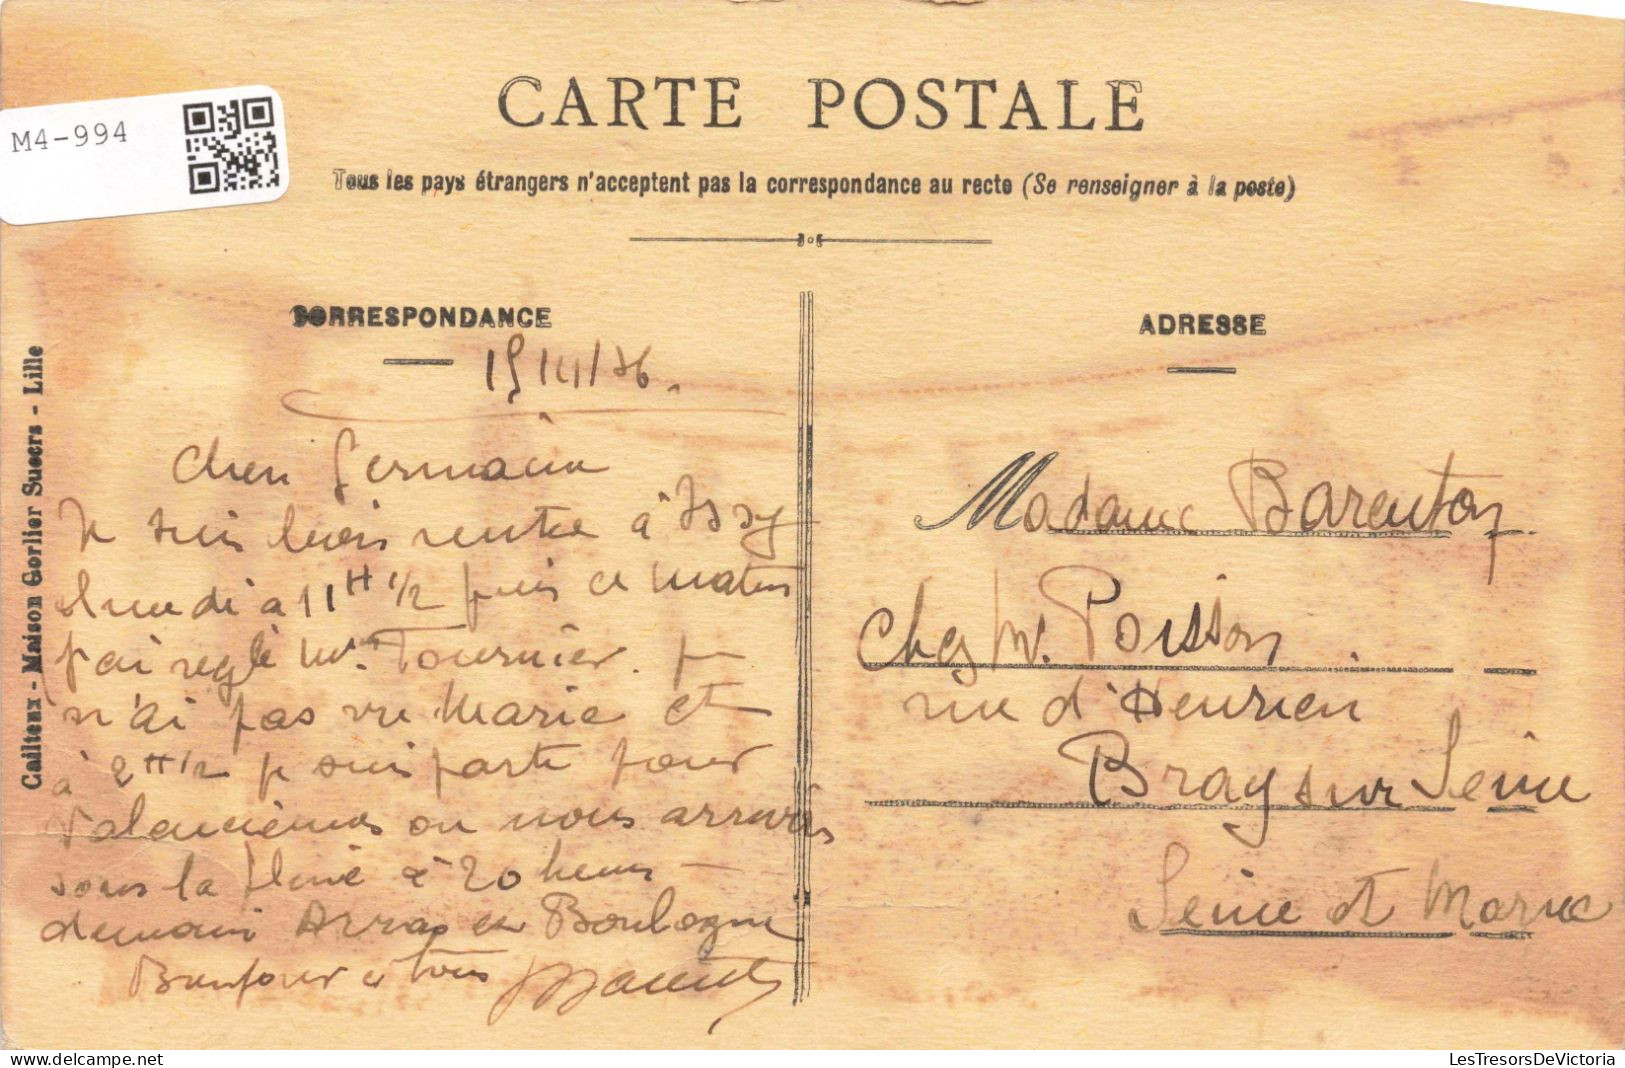 M4-994
CARTE POSTALE
Tous les pays étrangers n'acceptent pas la correspondance au recto (Se renseigner à la poste)
CORRESPONDANCE
ADRESSE
Cailteux - Maison Gorlier Succrs - Lille
Germaine
Je suis rentré à Issy
lundi à 11H 1/2 puis ce matin
j'ai reglé Mr. Tournier. je
n'ai pas vu Marie et
à 2H1/2 je suis parti pour
Valenciennes ou nous arrivons
sous la pluie à 20 heures -
demain Arras et Boulogne
Bonjour à tous
Madame Barenton
Chez Mr. Poisson
rue d'
Bray sur Seine
Seine et Marne
LesTresorsDeVictoria
delcampe.net